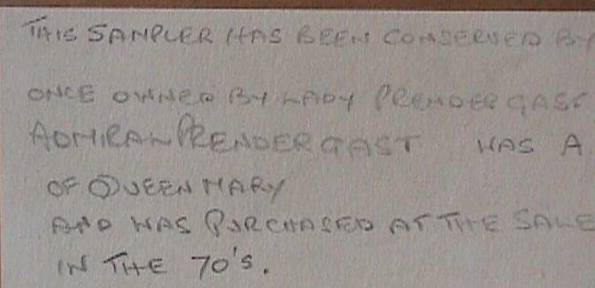 THIS SAMPLER HAS BEEN CONSERVED BY
ONCE OWNED BY LADY PRENDERGAST
ADMIRAL PRENDERGAST WAS A
OF QUEEN MARY
AND WAS PURCHASED AT THE SALE
IN THE 70'S.